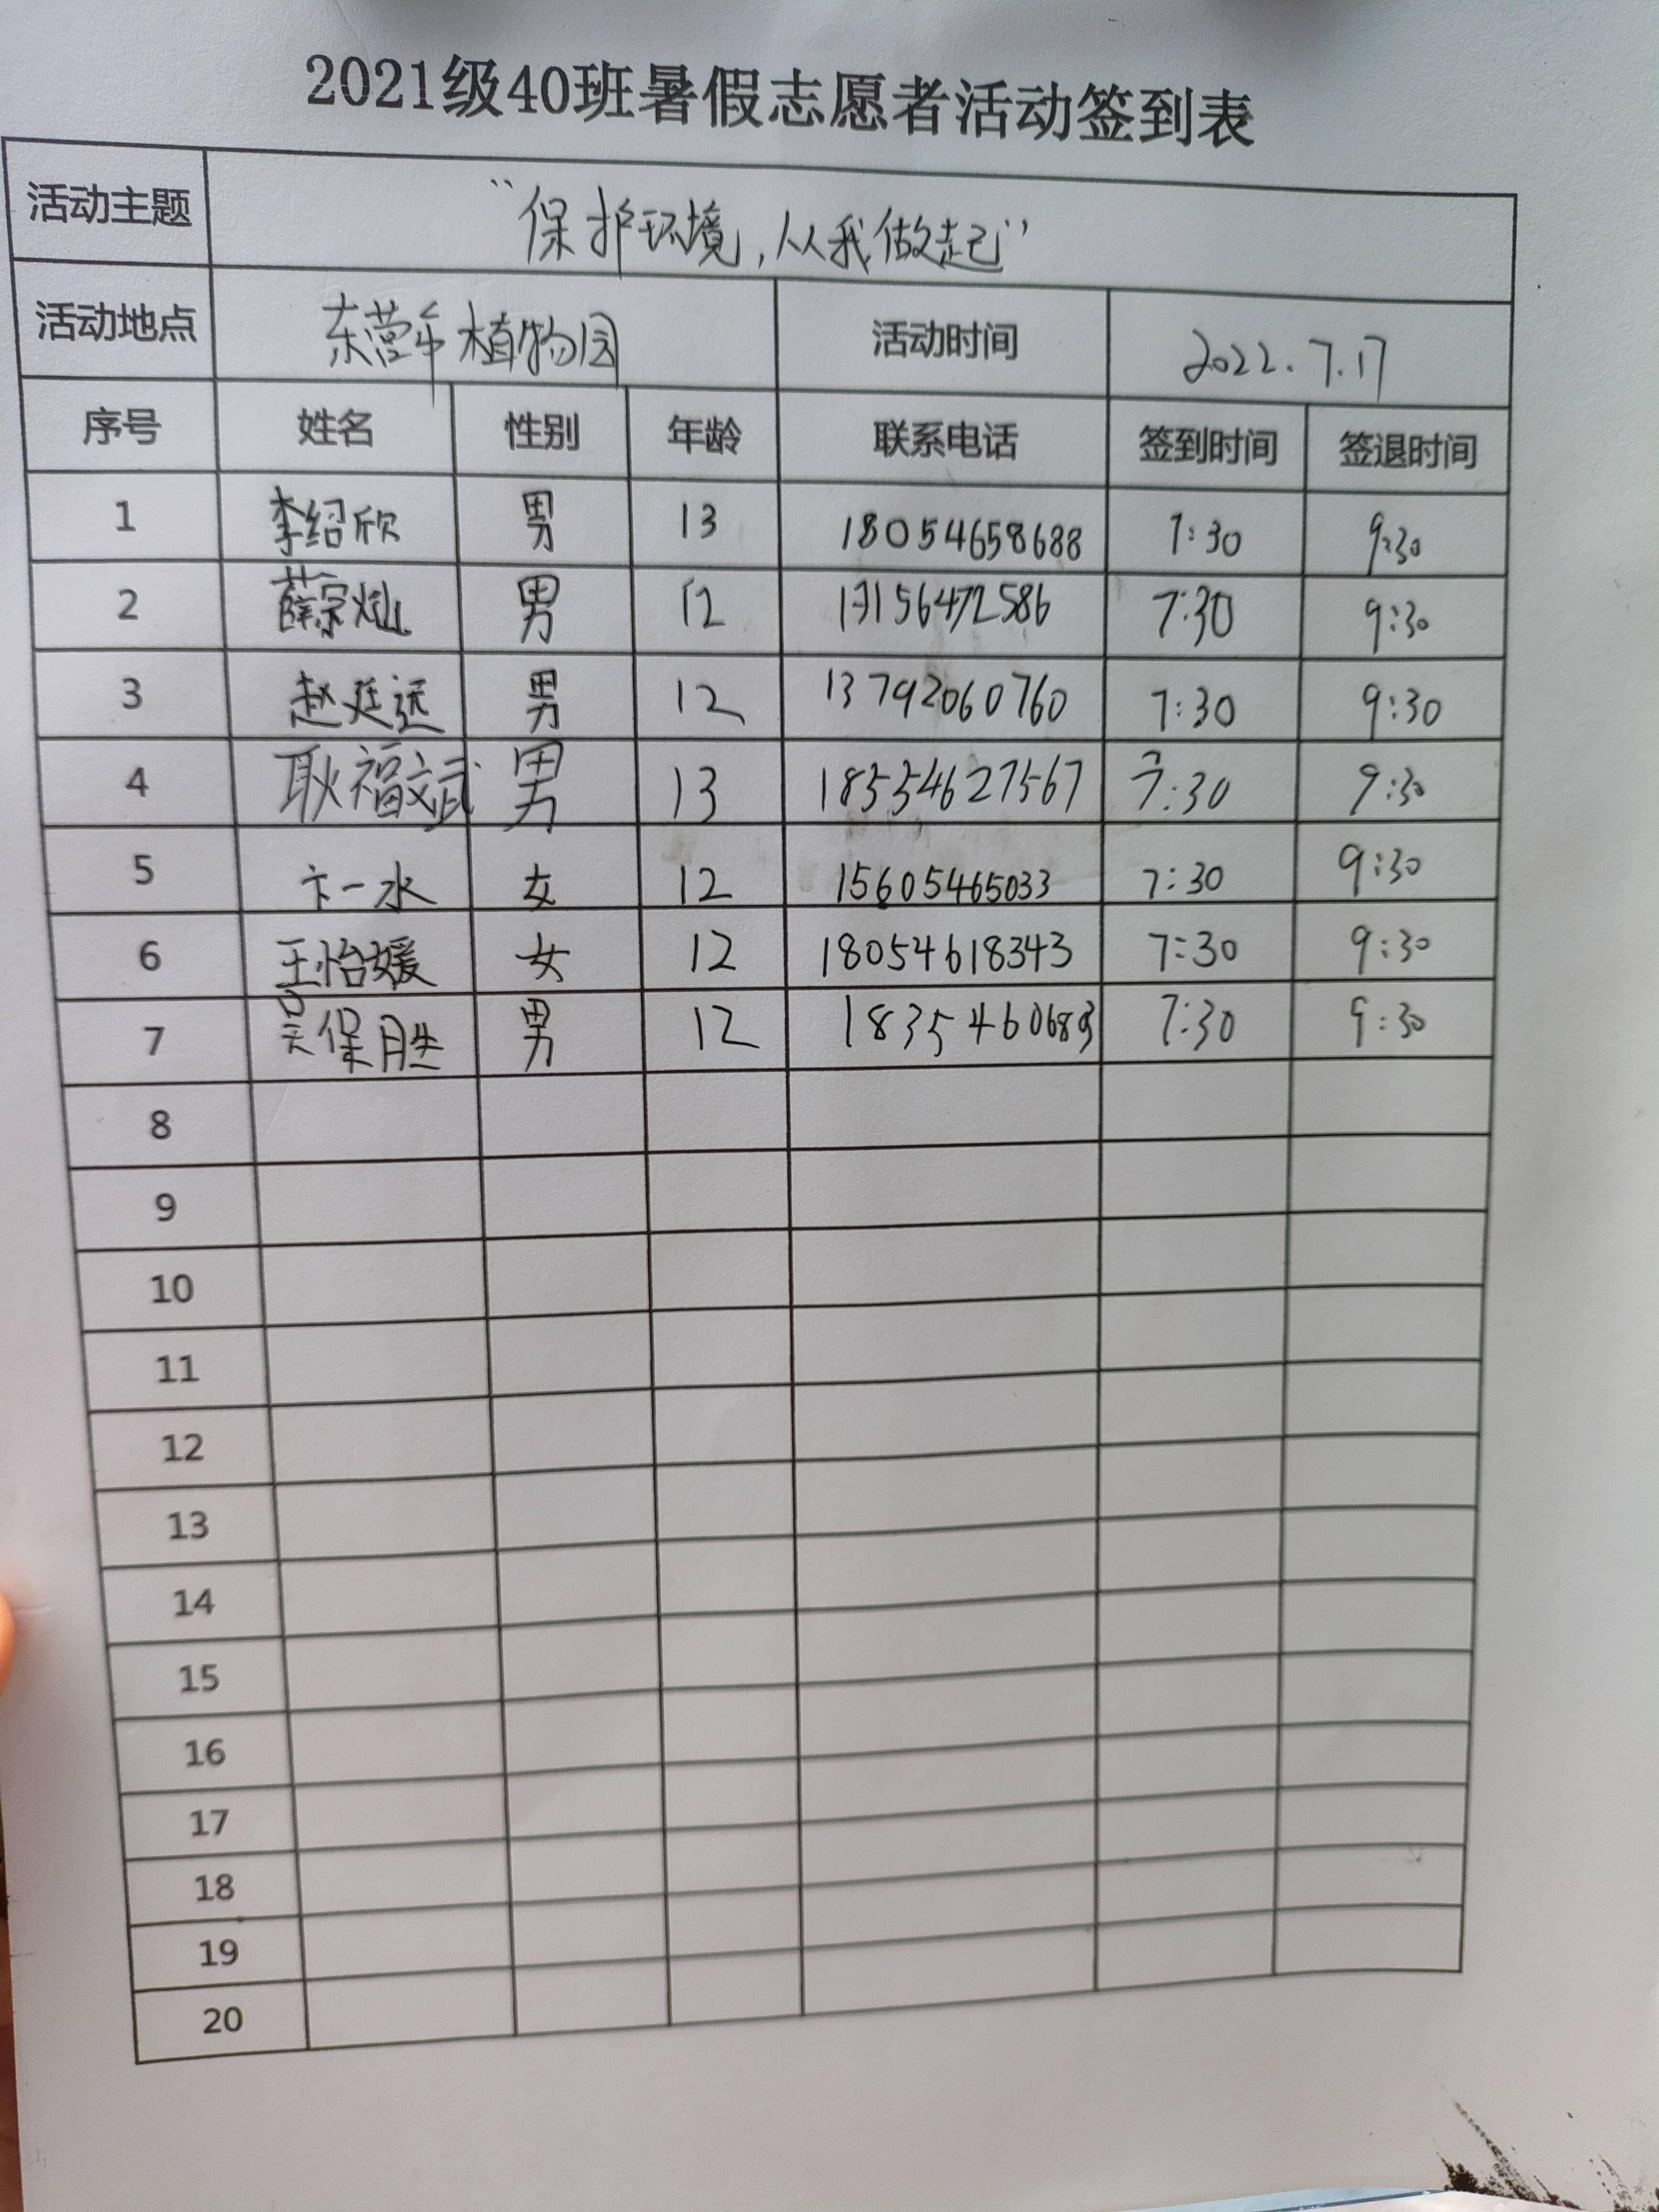 2021级40班暑假志愿者活动签到表
活动主题 “保护环境，从我做起”
活动地点 东营市植物园 活动时间 2022.7.17
序号 姓名 性别 年龄 联系电话 签到时间 签退时间
1 李绍欣 男 13 18054658688 7:30 9:30
2 薛宗灿 男 12 13156472586 7:30 9:30
3 赵廷远 男 12 13792060760 7:30 9:30
4 耿福斌 男 13 18554627567 7:30 9:30
5 卞一水 女 12 15605465033 7:30 9:30
6 王怡媛 女 12 18054618343 7:30 9:30
7 吴保胜 男 12 7:30 9:30
8
9
10
11
12
13
14
15
16
17
18
19
20